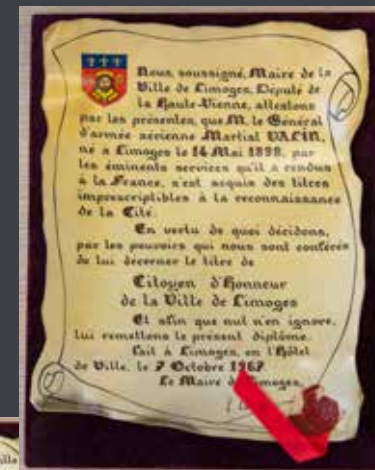 Nous, soussigné, Maire de la
Ville de Limoges, Député de
la Haute-Vienne, attestons
par les présentes, que M. le Général
d'armée aérienne Martial VALIN,
né a Limoges le 14 Mai 1898, par
les éminents services qu'il a rendus
à la France, s'est acquis des titres
imprescriptibles à la reconnaissance
de la Cité.
En vertu de quoi décidons,
par les pouvoirs qui nous sont conférés
de lui décerner le titre de
Citoyen d'Honneur
de la Ville de Limoges
Et afin que nul n'en ignore,
lui remettons le présent diplôme.
Fait à Limoges, en l'Hôtel
de Ville, le 7 Octobre 1967
Le Maire de Limoges,